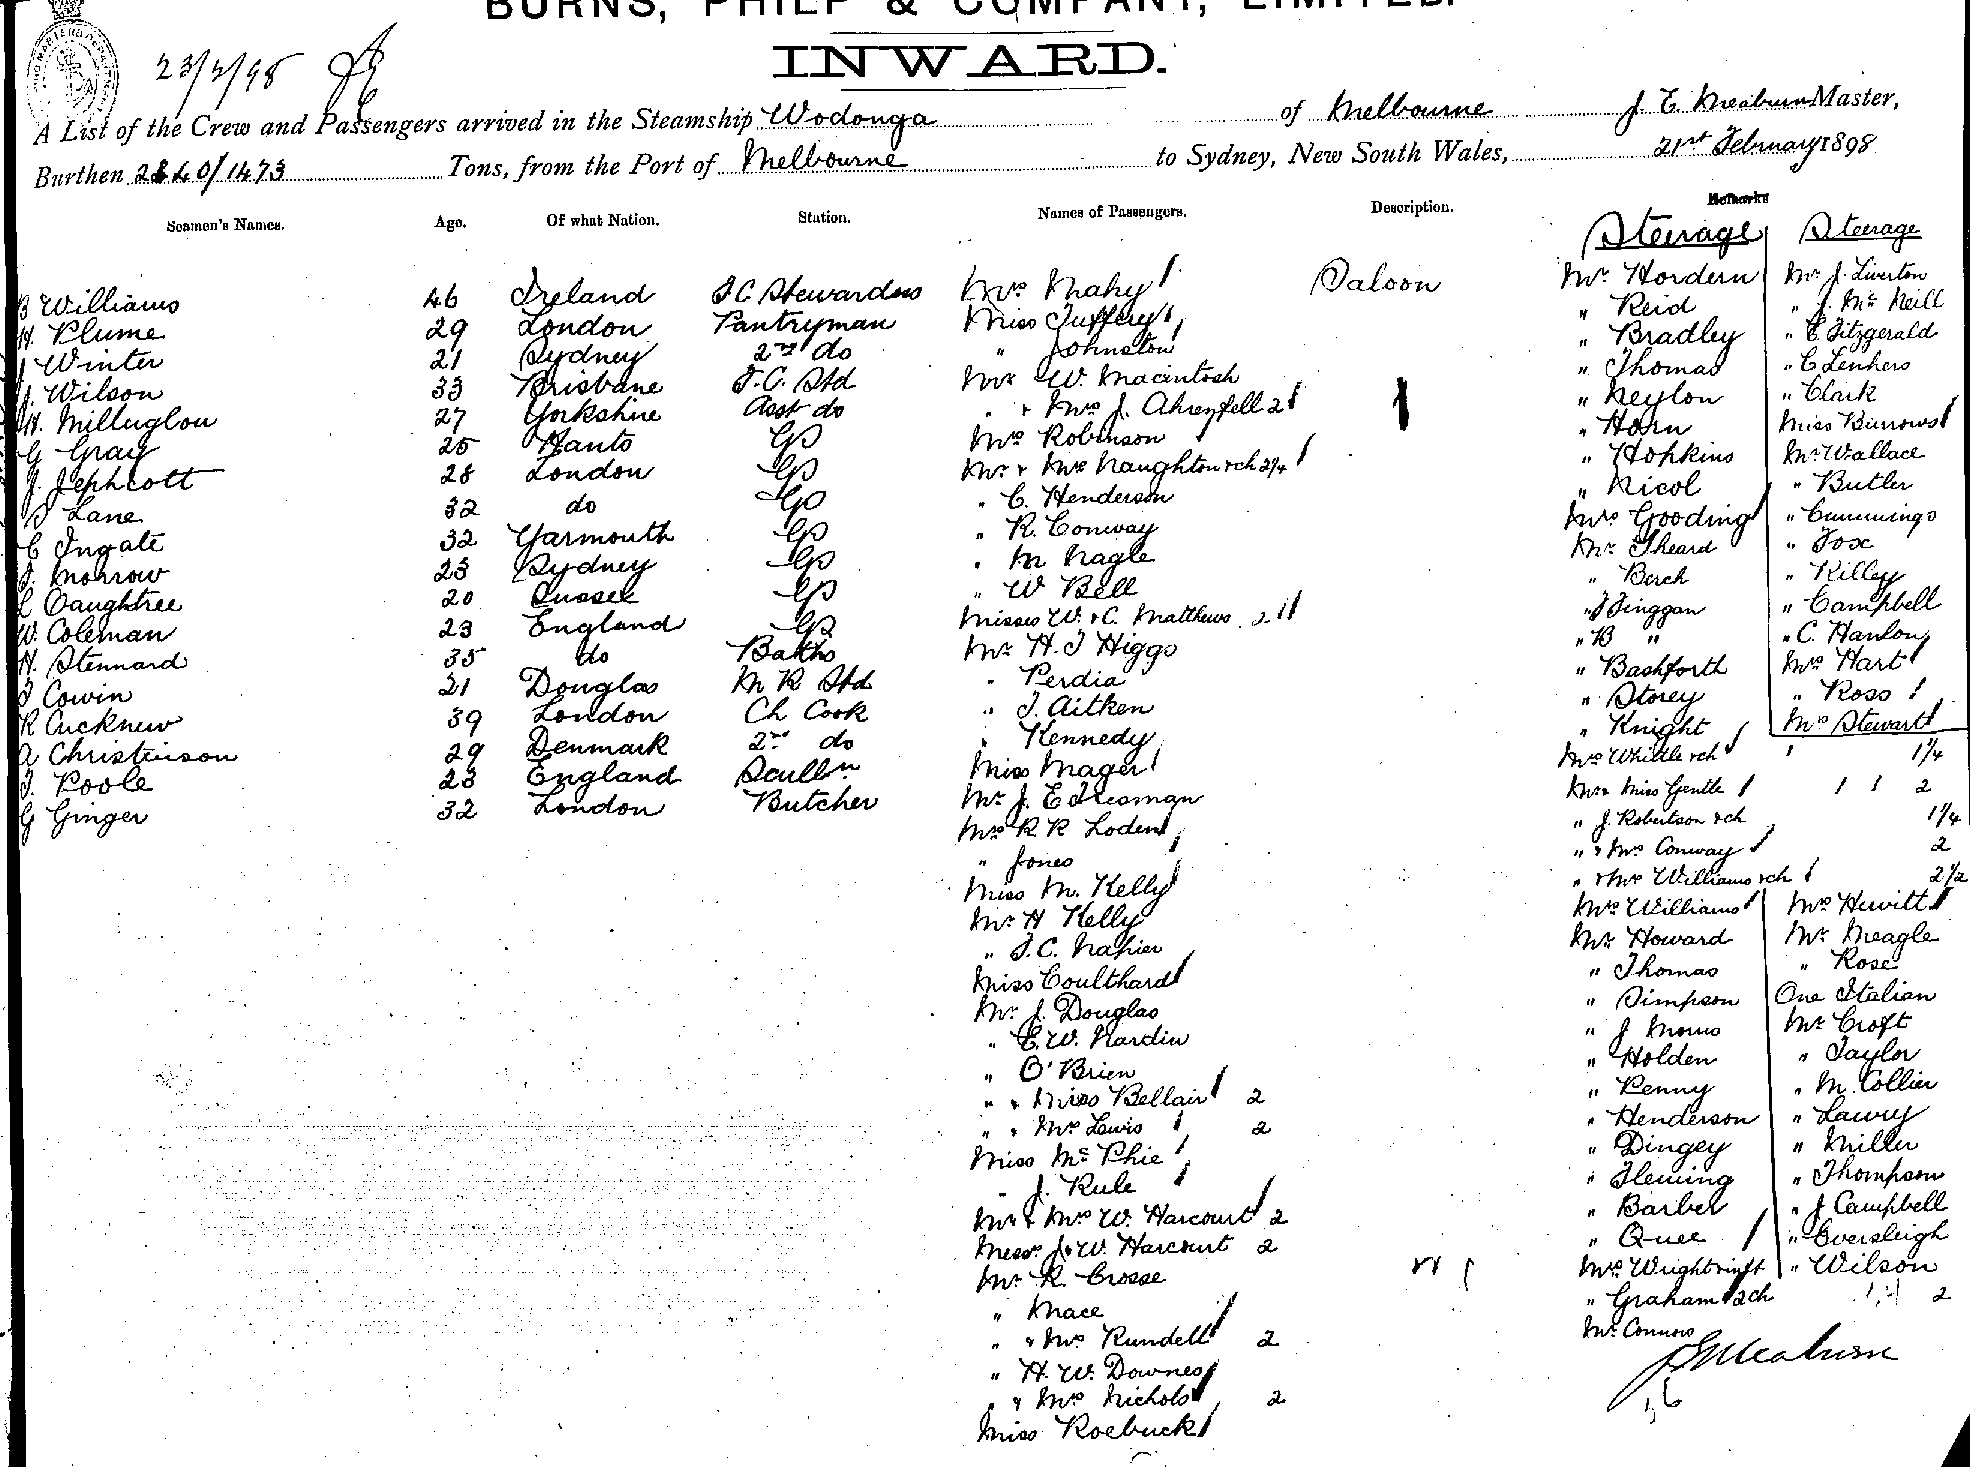 BURNS, PHILP & COMPANY, LIMITED.
INWARD.
23/2/98
A List of the Crew and Passengers arrived in the Steamship Wodonga of Melbourne J. E. Meaburn Master,
Burthen 2840/1473 Tons, from the Port of Melbourne to Sydney, New South Wales, 21st February 1898
Seamen's Names. Age. Of what Nation. Station. Names of Passengers. Description. Remarks
B Williams 46 Ireland F C Stewardess
H. Plume 29 London Pantryman
J Winter 21 Sydney 2nd do
J. Wilson 33 Brisbane F. C. Std
H. Milluglou 27 Yorkshire Asst do
G Gray 25 Hants GS
J. Jephcott 28 London GS
J Lane 32 do GS
C Ingate 32 Yarmouth GS
J. Morrow 23 Sydney GS
C Daughtree 20 Sussex GS
W. Coleman 23 England GS
H. Stennard 35 do Baths
J Cowin 21 Douglas M R Std
R Cucknew 39 London Ch Cook
A Christenson 29 Denmark 2nd do
J. Poole 23 England Sculln
G Ginger 32 London Butcher
Saloon
Mrs Mahy
Miss Juffery
" Johnston
Mr W. Macintosh
" & Mrs J. Ahrenfell 2
Mrs Robinson
Mr & Mrs Naughton & ch 2/4
" C. Henderson
" R. Conway
" M Nagle
" W Bell
Misses W. & C. Matthews 2
Mr H. J Higgs
" Perdia
" J. Aitken
" Kennedy
Miss Mager
Mr J. E Tresman
Mrs R R Loden
" Jones
Miss M. Kelly
Mr H Kelly
" J. C. Napier
Miss Coulthard
Mr J. Douglas
" E. W. Nardin
" O'Brien
" & Miss Bellair 2
" & Mrs Lewis 2
Miss McPhie
" J. Rule
Mr & Mrs W. Harcourt 2
Messrs J. & W. Harcourt 2
Mr R. Crosse
" Mace
" & Mrs Rundell 2
" H. W. Downes
" & Mrs Nichols 2
Miss Roebuck
Steerage
Mr Hordern
" Reid
" Bradley
" Thomas
" Neylon
" Horn
" Hopkins
" Nicol
Mrs Gooding
Mr Sheard
" Berch
" J Finggan
" B "
" Bashforth
" Storey
" Knight
Steerage
Mr J. Liverton
" J. McNeill
" E Fitzgerald
" C Lenhers
" Clark
Miss Burrows
Mr Wallace
" Butler
" Cummings
" Fox
" Killey
" Campbell
" C. Hanlon
Mrs Hart
" Ross
Mrs Stewart
Mrs Whittle & ch 1 1/4
Mr & Miss Gentle 1 1 2
" J. Robertson & ch 1 1/4
" & Mrs Conway 2
" & Mrs Williams & ch 2 1/2
Mrs Williams
Mr Howard
" Thomas
" Simpson
" J Morris
" Holden
" Penny
" Henderson
" Dingey
" Fleming
" Barber
" Quee
Mrs Wright & inft
" Graham 2 ch 2
Mr Connors
Mrs Hewitt
Mr Meagle
" Rose
One Italian
Mr Croft
" Taylor
" M. Collier
" Lawry
" Miller
" Thompson
" J Campbell
" Eversleigh
" Wilson
J E Meaburn